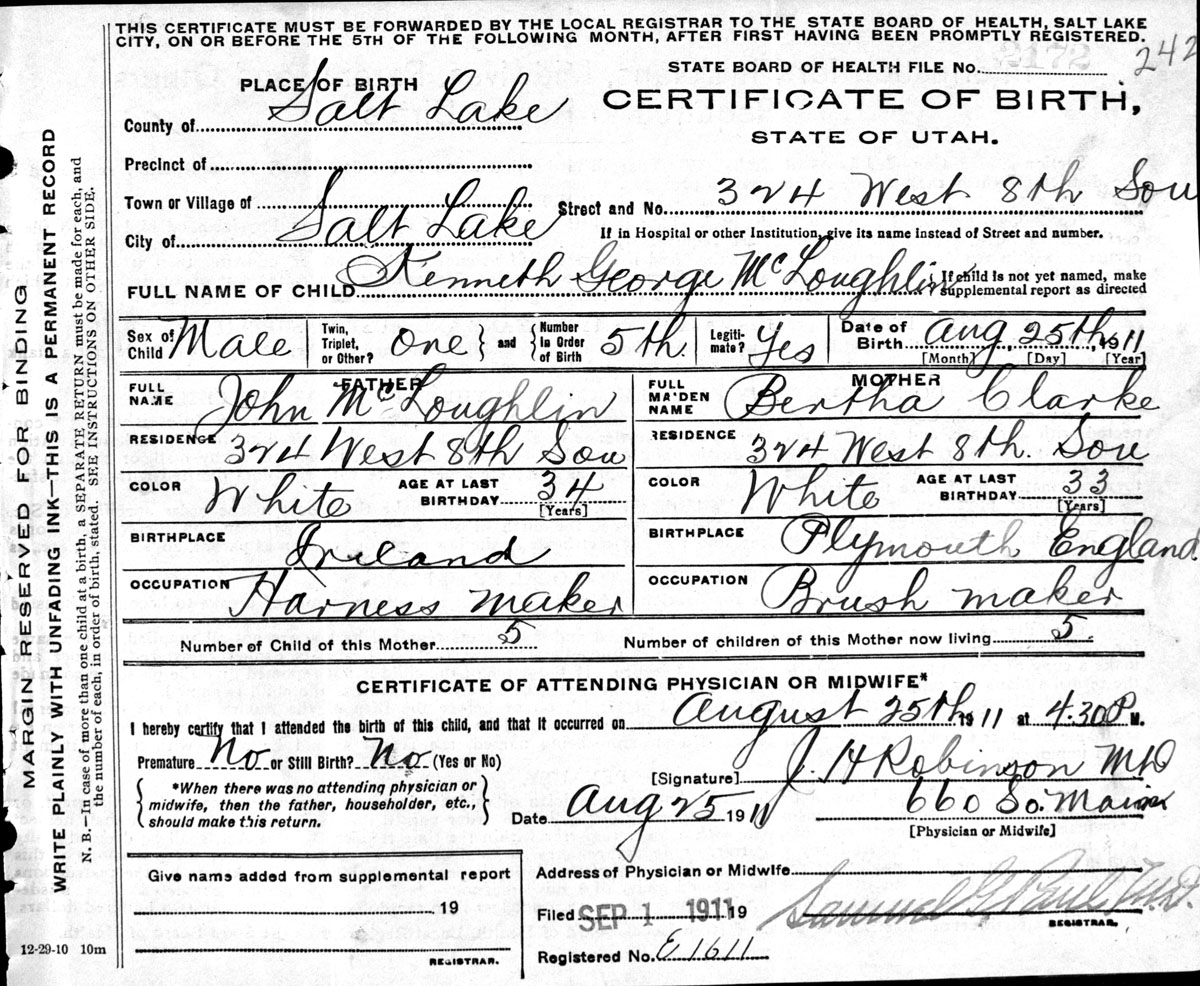 THIS CERTIFICATE MUST BE FORWARDED BY THE LOCAL REGISTRAR TO THE STATE BOARD OF HEALTH, SALT LAKE
CITY, ON OR BEFORE THE 5TH OF THE FOLLOWING MONTH, AFTER FIRST HAVING BEEN PROMPTLY REGISTERED.
STATE BOARD OF HEALTH FILE No. 242
PLACE OF BIRTH
CERTIFICATE OF BIRTH,
STATE OF UTAH.
County of Salt Lake
Precinct of
Town or Village of
Street and No. 324 West 8th Sou
City of Salt Lake
If in Hospital or other Institution, give its name instead of Street and number.
FULL NAME OF CHILD Kenneth George McLoughlin
If child is not yet named, make
supplemental report as directed
Sex of Child Male
Twin, Triplet, or Other? One
and
Number in Order of Birth 5th.
Legiti-mate? Yes
Date of Birth Aug 25th, 1911
[Month] [Day] [Year]
FATHER
FULL NAME John McLoughlin
RESIDENCE 324 West 8th Sou
COLOR White
AGE AT LAST BIRTHDAY 34
[Years]
BIRTHPLACE Ireland
OCCUPATION Harness maker
MOTHER
FULL MAIDEN NAME Bertha Clarke
RESIDENCE 324 West 8th. Sou
COLOR White
AGE AT LAST BIRTHDAY 33
[Years]
BIRTHPLACE Plymouth England
OCCUPATION Brush maker
Number of Child of this Mother 5
Number of children of this Mother now living 5
CERTIFICATE OF ATTENDING PHYSICIAN OR MIDWIFE*
I hereby certify that I attended the birth of this child, and that it occurred on August 25th 1911 at 4.30 P M.
Premature No or Still Birth? No (Yes or No)
*When there was no attending physician or
midwife, then the father, householder, etc.,
should make this return.
[Signature] J. H Robinson MD
Date Aug 25 1911
660 So. Main
[Physician or Midwife]
Give name added from supplemental report
19
REGISTRAR.
Address of Physician or Midwife
Filed SEP 1 1911 19
Samuel G. Paul, M.D.
REGISTRAR.
Registered No. E 1611
12-29-10 10m
MARGIN RESERVED FOR BINDING
WRITE PLAINLY WITH UNFADING INK—THIS IS A PERMANENT RECORD
N. B.—In case of more than one child at a birth, a SEPARATE RETURN must be made for each, and
the number of each, in order of birth, stated. SEE INSTRUCTIONS ON OTHER SIDE.